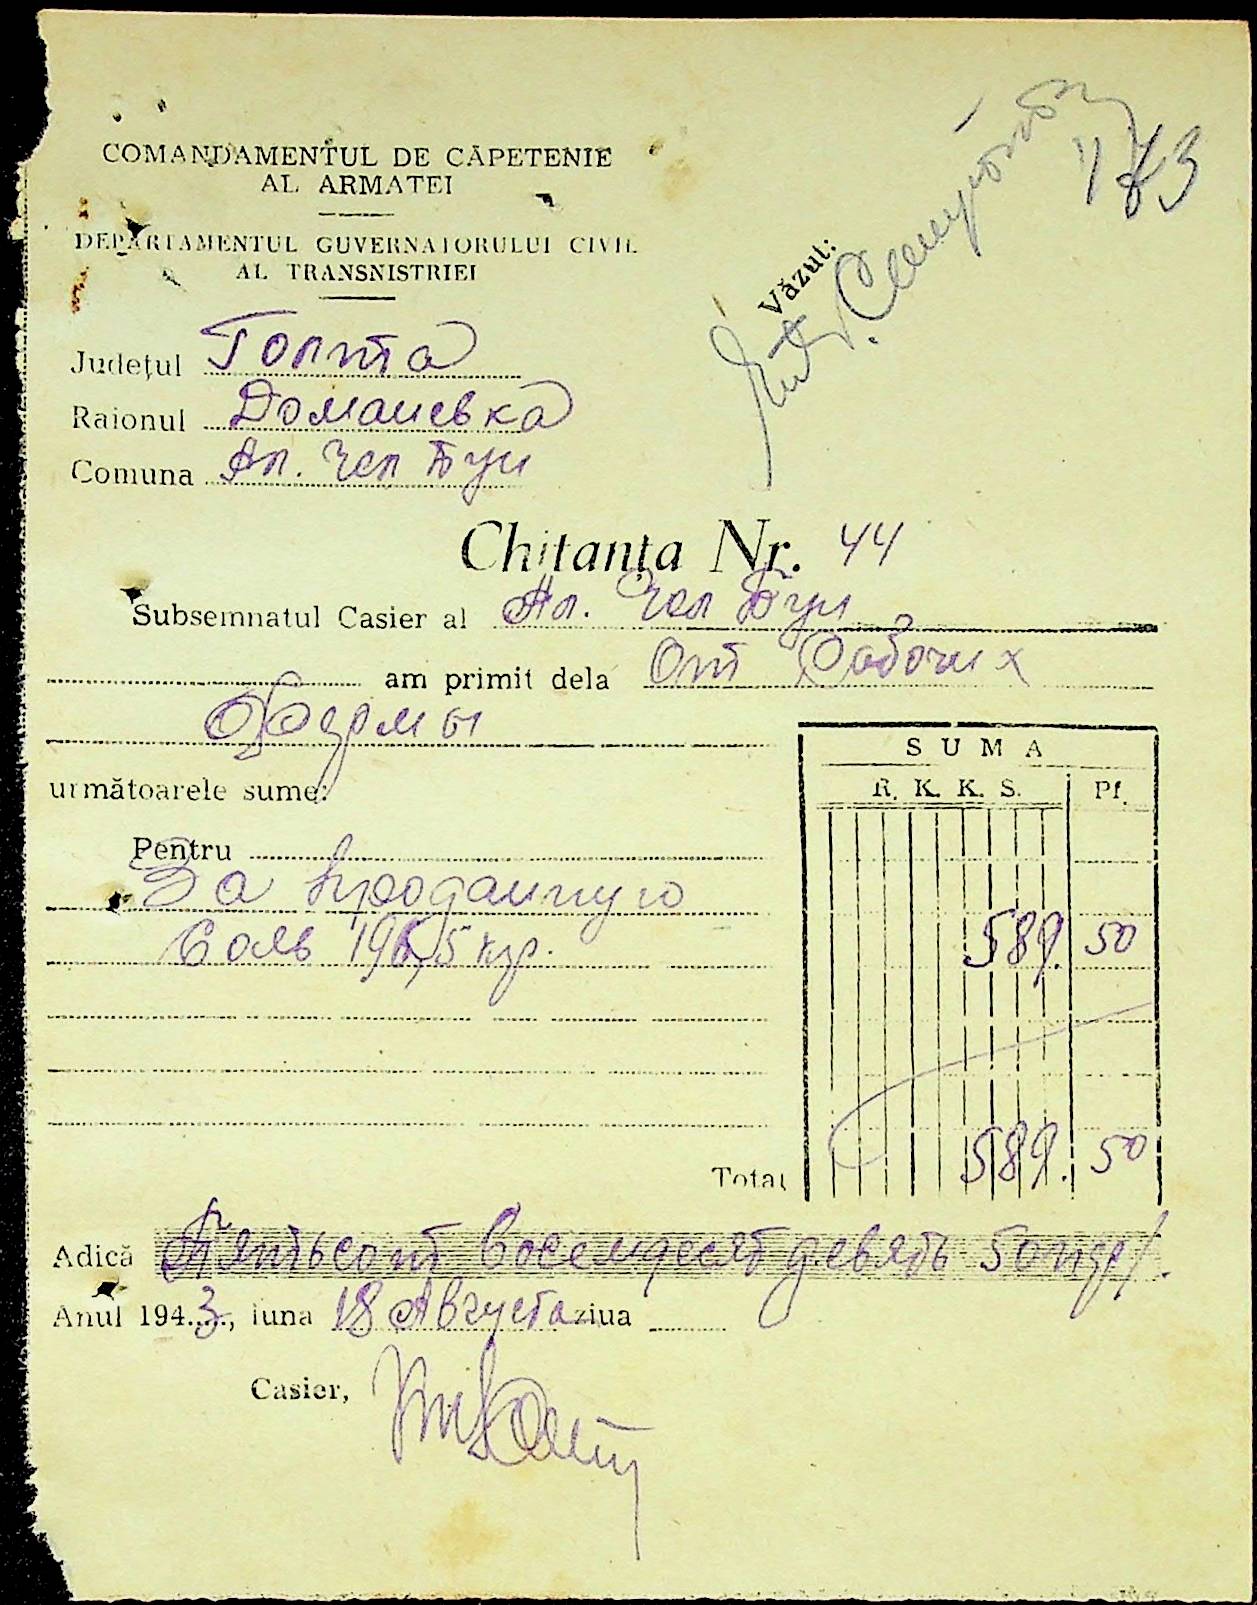 COMANDAMENTUL DE CĂPETENIE
AL ARMATEI
DEPARTAMENTUL GUVERNATORULUI CIVIL
AL TRANSNISTRIEI
173
Văzut:
Județul Голта
Raionul Доманевка
Comuna Ап. Чел Бун
Chitanța Nr. 44
Subsemnatul Casier al Ап. Чел Бун
am primit dela От Рабочих
Фермы
următoarele sume:
SUMA
R. K. K. S. Pf.
Pentru
За проданную
Соль 196,5 кгр. 589. 50
Total 589. 50
Adică Пятьсот восемдесят девять 50 пф.
Anul 1943, luna 18 Августа ziua
Casier,